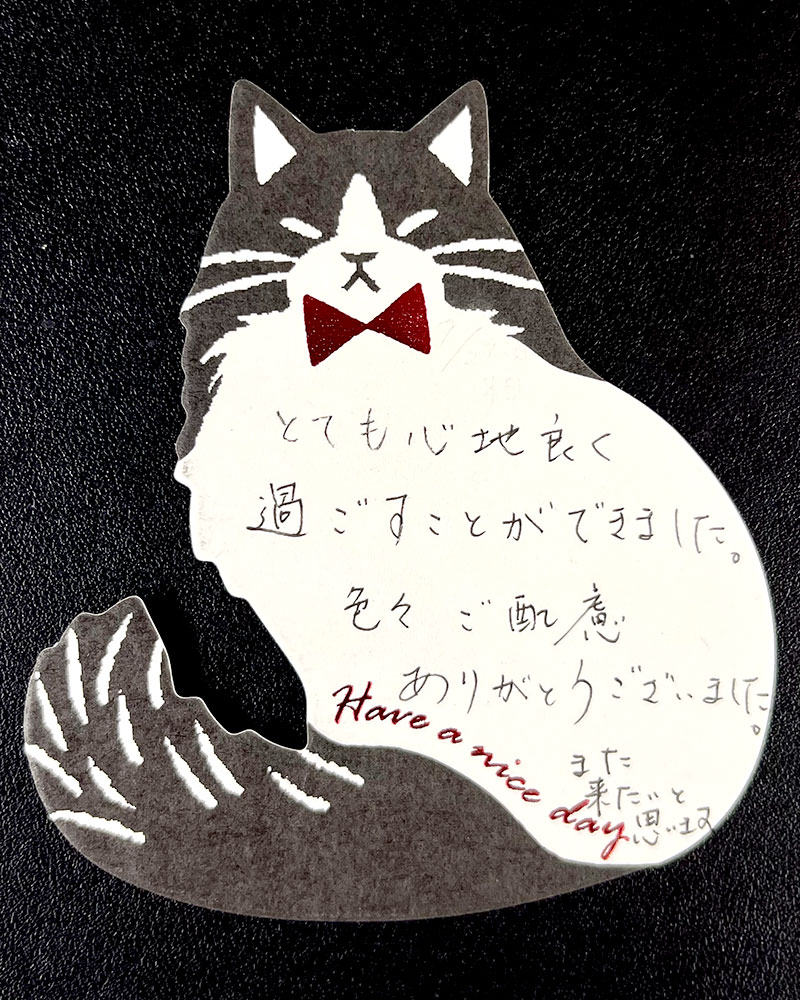 とても心地良く
過ごすことができました。
色々ご配慮
ありがとうございました。
Have a nice day
また
来たいと
思います